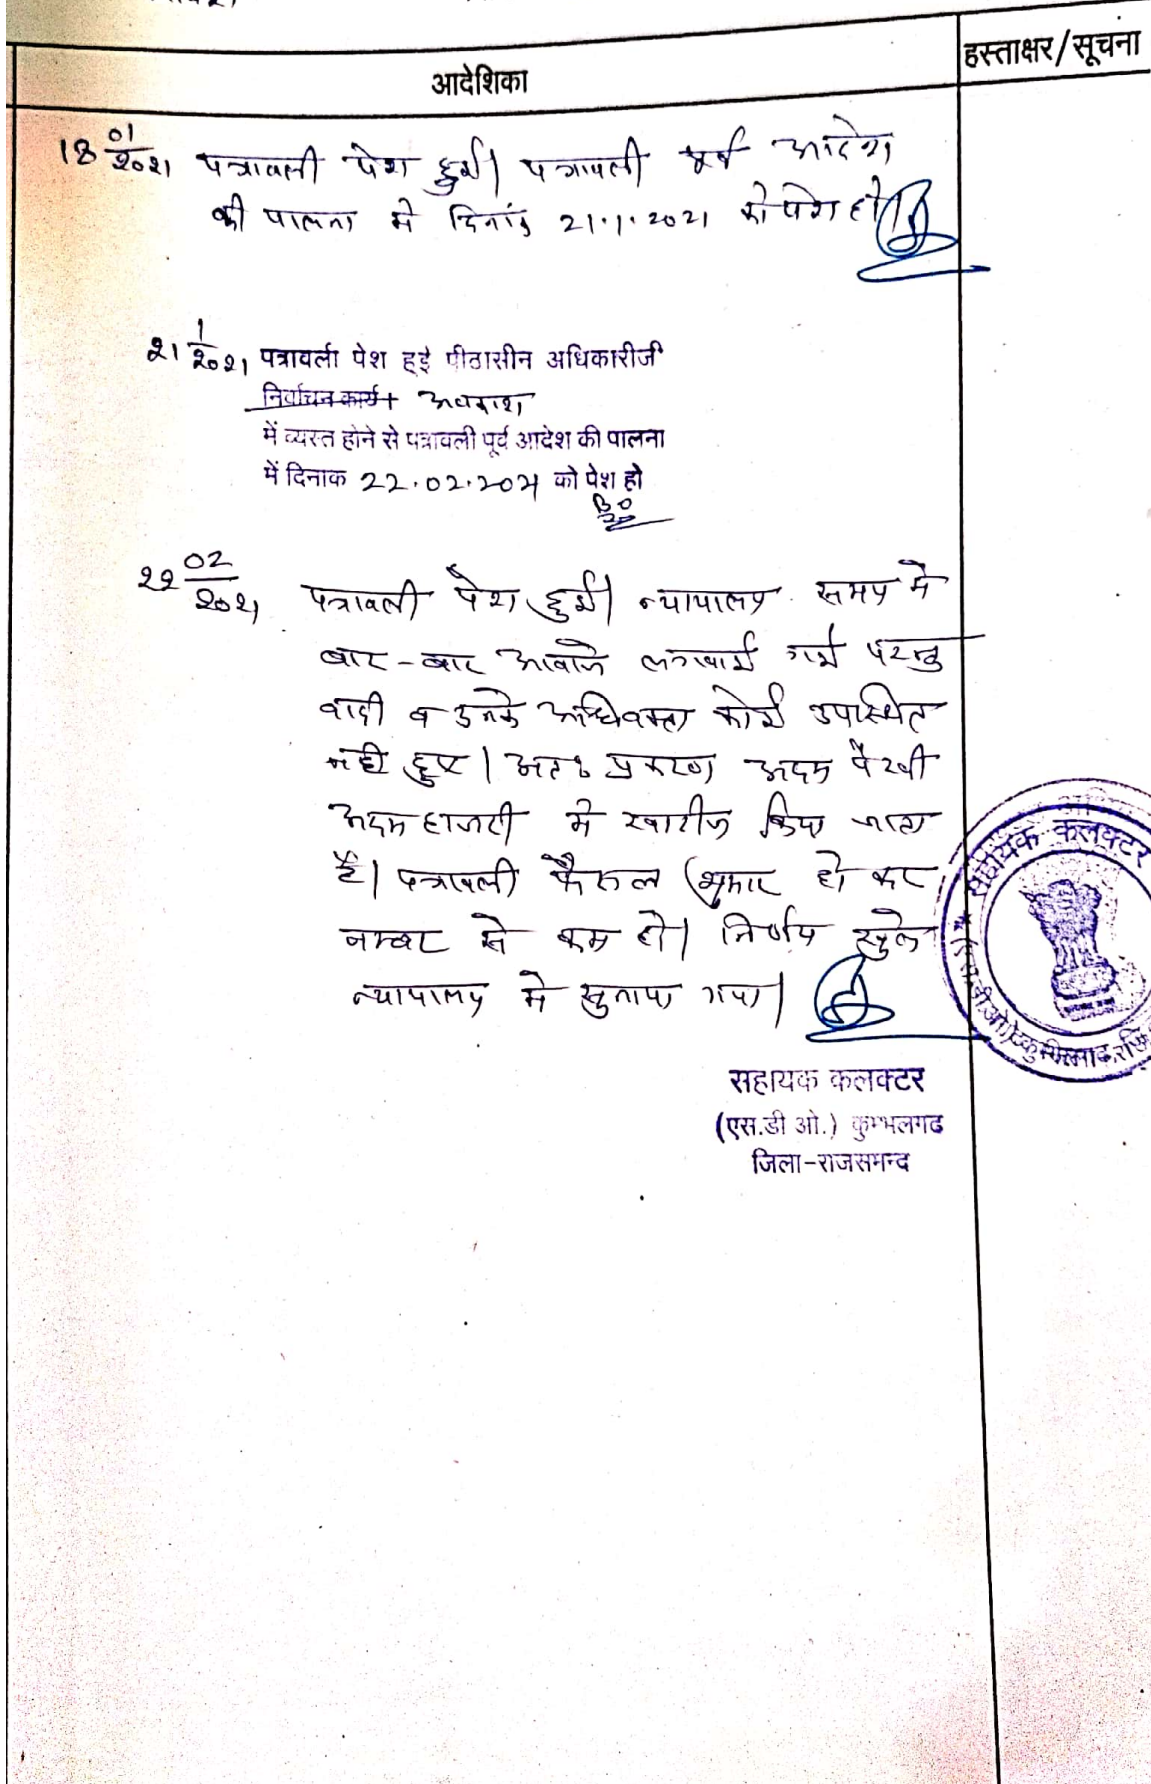 आदेशिका
हस्ताक्षर/सूचना
18 01/2021 पत्रावली पेश हुई। पत्रावली पूर्व आदेश
की पालना मे दिनांक 21.1.2021 को पेश हो।
21 1/2021 पत्रावली पेश हुई पीठासीन अधिकारीजी
निर्वाचन कार्य+ अवकाश
में व्यस्त होने से पत्रावली पूर्व आदेश की पालना
में दिनाक 22.02.2021 को पेश हो
22 02/2021 पत्रावली पेश हुई। न्यायालय समय मे
बार-बार आवाजे लगवाई गई परन्तु
वादी व उनके अधिवक्ता कोई उपस्थित
नही हुए। अतः प्रकरण अदम पैरवी
अदम हाजरी मे खारीज किया जाता
है। पत्रावली फैसल शुमार हो कर
नम्बर से कम हो। निर्णय खुले
न्यायालय मे सुनाया गया।
सहायक कलक्टर
सहायक कलक्टर
(एस.डी ओ.) कुम्भलगढ
जिला-राजसमन्द